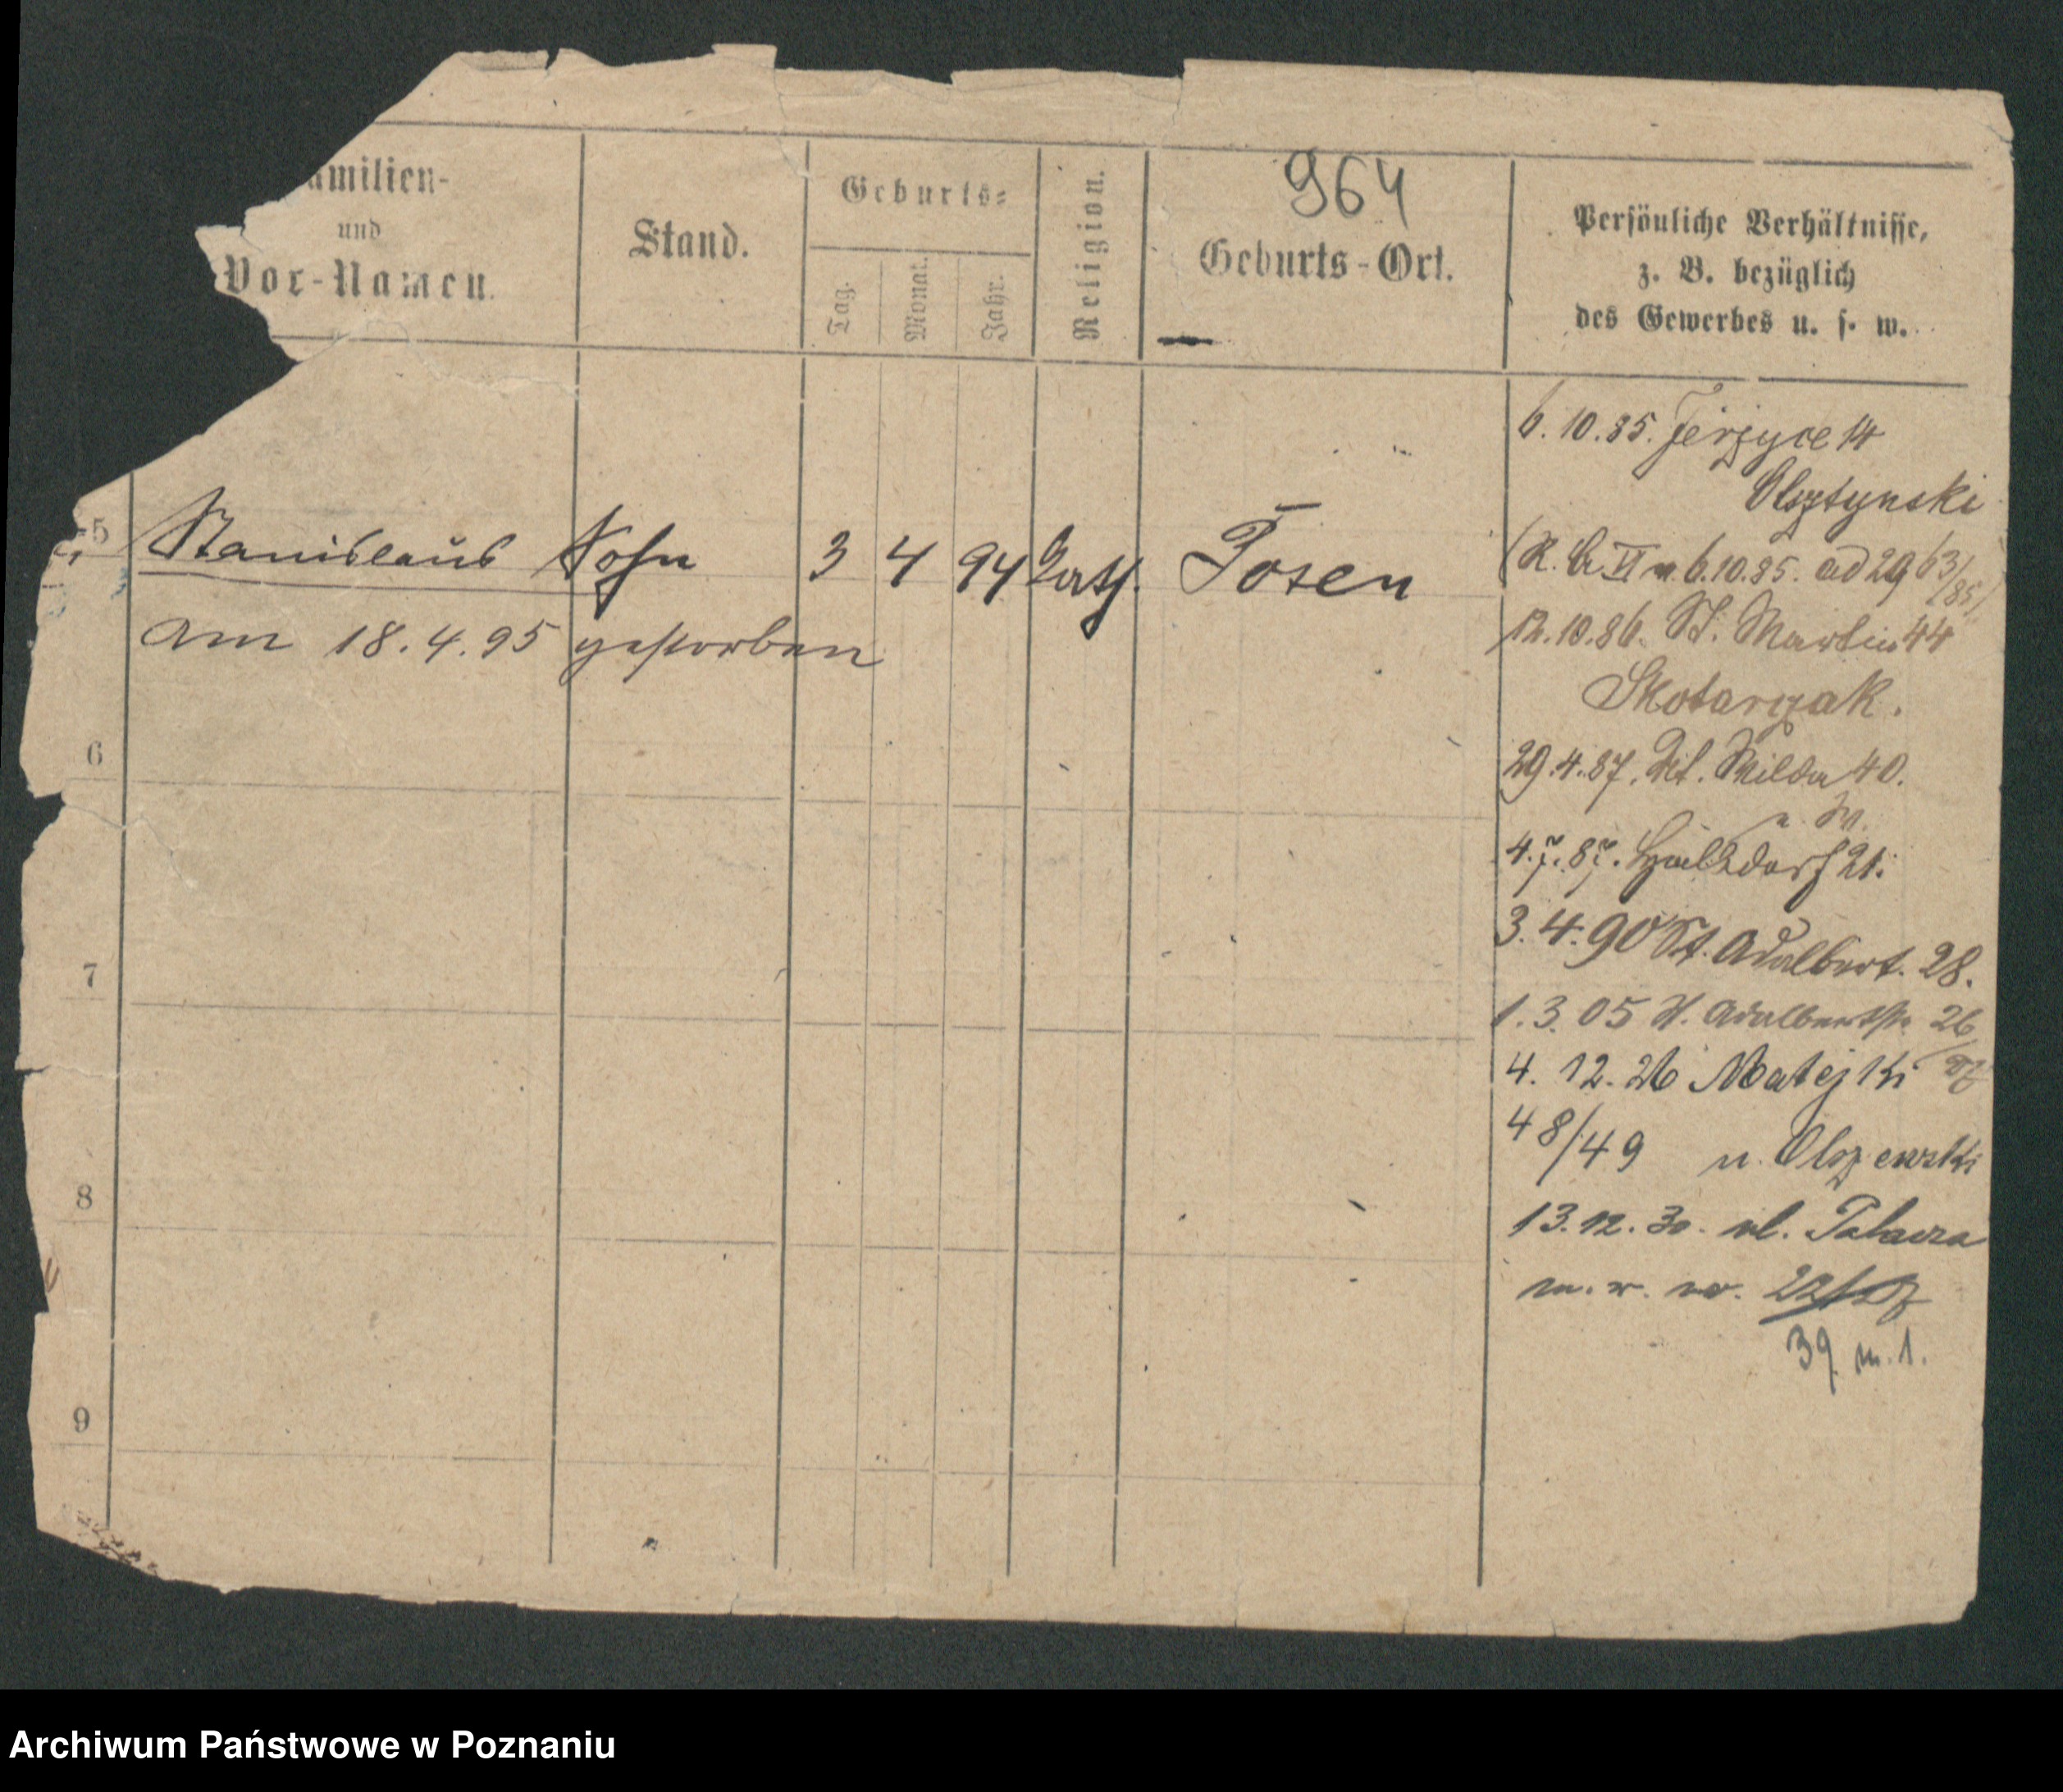 964
amilien-
und
Vor-Namen.
Stand.
Geburts-
Tag.
Monat.
Jahr.
Religion.
Geburts-Ort.
Persönliche Verhältnisse,
z. B. bezüglich
des Gewerbes u. s. w.
5 Stanislaus Sohn 3 4 94 kath. Posen
am 18.4.95 gestorben
6
7
8
9
6.10.85. Jerzyce 14
Olsztynski
6.10.85. ad 2963/85)
12.10.86. St. Martin 44
Skotarzak.
29.4.87. Wilda 40.
4.7.87. 21.
3.4.90 St. Adalbert. 28.
1.3.05 St. Adalbertstr. 26/27
4.12.26 Matejki
48/49 u. Olszewski
13.12.30. ul. Palacza
39 m. 1.
Archiwum Państwowe w Poznaniu